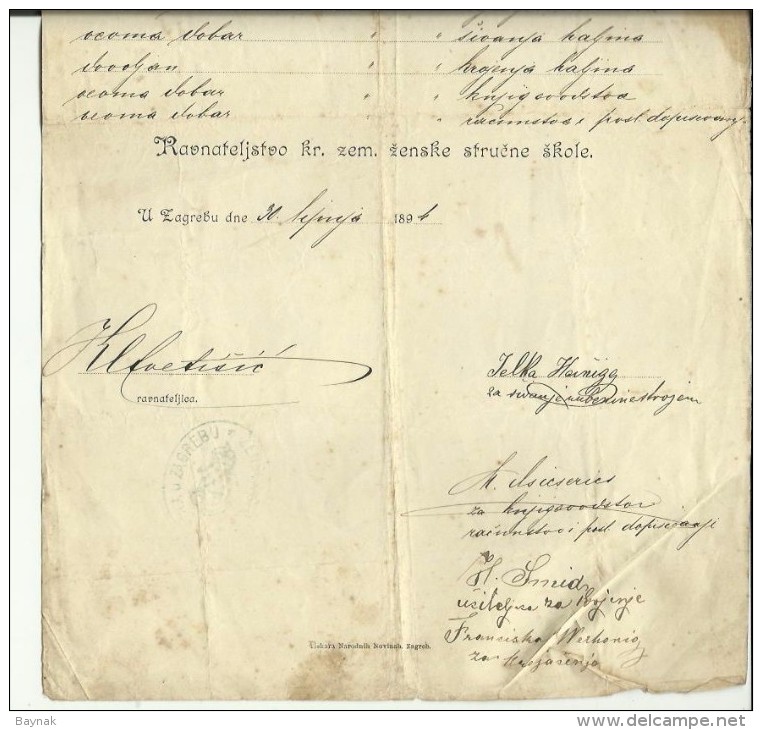 veoma dobar " " šivanja haljina
dovoljan " " krojenja haljina
veoma dobar " " knjigovodstva
veoma dobar " računstva i posl. dopisivanj.
Ravnateljstvo kr. zem. ženske stručne škole.
U Zagrebu dne 30. lipnja 1894
Cvetišić
ravnateljica.
U ZAGREBU
Jelka
za šivanje strojem
za knjigovodstvo
računstvo i posl. dopisivanje
H. Šmid
učiteljica za krojenje
Franciska
za
Tiskara Narodnih Novinah Zagreb.
Baynak
www.delcampe.net